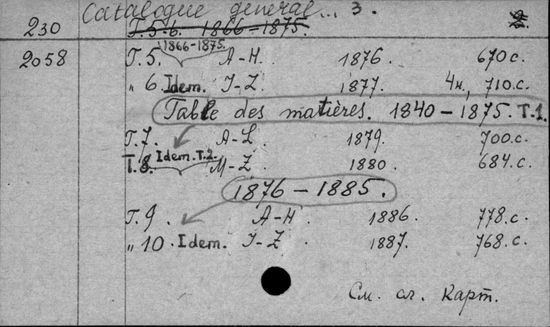 Catalogue général... 3.
230 T.5-6. 1866-1875.
1866-1875.
2058 T.5. A-H. 1876 670 с.
" 6. Idem. I-Z. 1877. 4н, 710 с.
Table des matières. 1840-1875. T.1.
T.7. A-L 1879. 700 с.
Idem. T.2.
T.8. M-Z 1880. 684 с.
1876-1885.
T.9. A-H. 1886. 778. с.
" 10. Idem. I-Z. 1887. 768. с.
См. сл. карт.